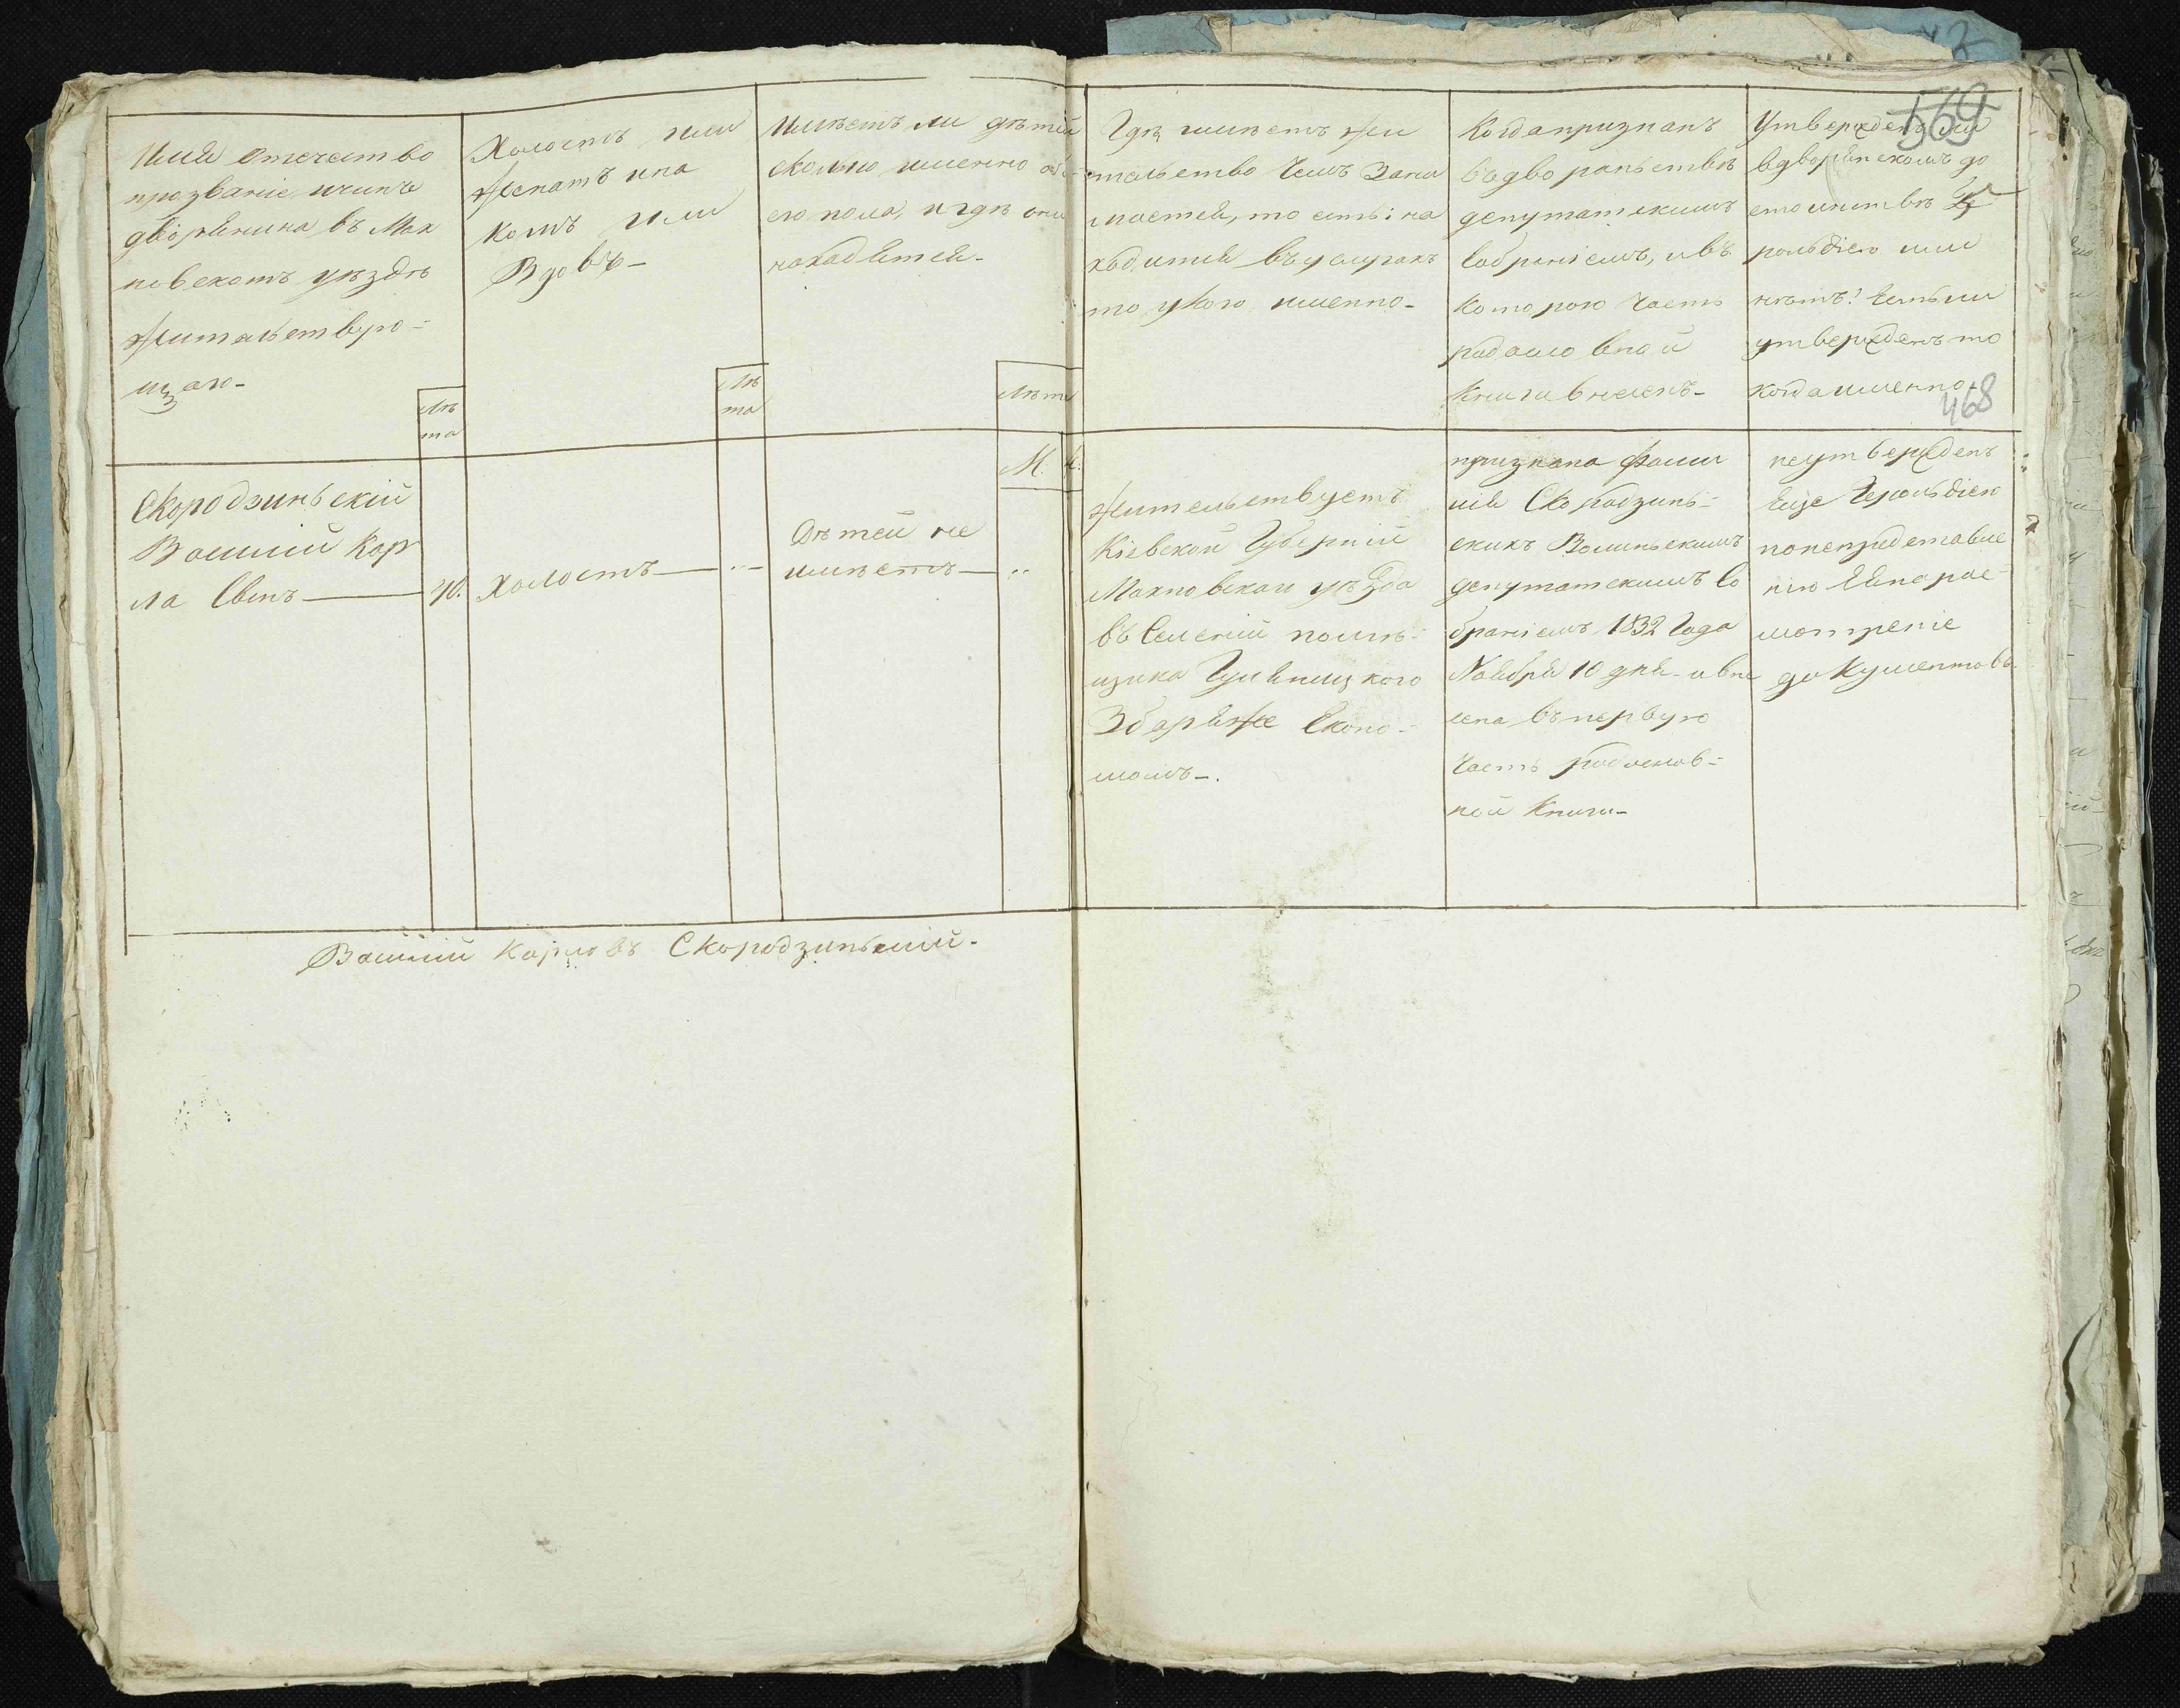 569
468
Имя Отечество
прозваніе ичинъ
дворянина въ Мах
новскомъ уѣздѣ
жительствую-
щаго-
Лѣ
та
Холостъ или
женатъ ина
комъ или
Вдовъ-
Лѣ
та
Имѣетъ ли дѣтей
сколько именно обо-
его пола, игдѣ они
находятся-
Лѣта
М. Ж.
Гдѣ имѣетъ жи
тельство чемъ Зани
мается, то есть: на
ходится въуслугахъ
то укого именно-
Когдапризнанъ
въдворанствѣ
депутатскимъ
Собраніемъ, ивъ
которою Часть
родословной
Книги внесенъ-
Утвержденъ ли
вдворянскомъ до
стоинствѣ Ге
рольдіею или
нѣтъ? Естьли
утвержденъ то
когдаименно-
Скородзинскій
Василій Кар
ла Сынъ — 40.
Холостъ —
Дѣтей не
имѣетъ —
Жительствуетъ
Кіевской Губерніи
Махновскаго уѣзда
въ Селеніи помѣ-
щика
Збаряже Еконо-
момъ-.
признана фами
лія Скородзинь-
скихъ Волынскимъ
депутатскимъ Со
браніемъ 1832 Года
Ноября 10 дня- ивне
сена въпервую
Часть родослов-
ной Книги-
неутвержденъ
Еще Герольдіею
понепредставле
нію Еянарас-
мотреніе
документовъ.
Василій Карловъ Скородзинскій-